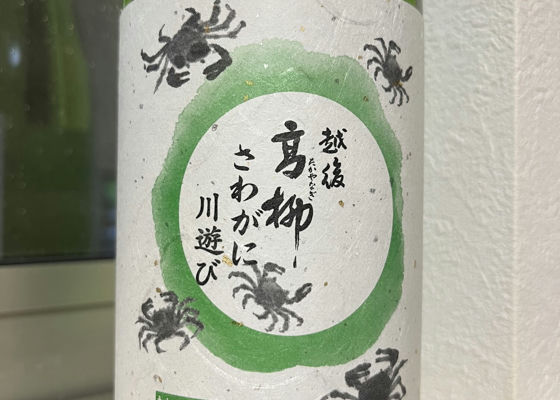 越後
高柳
たかやなぎ
さわがに
川遊び